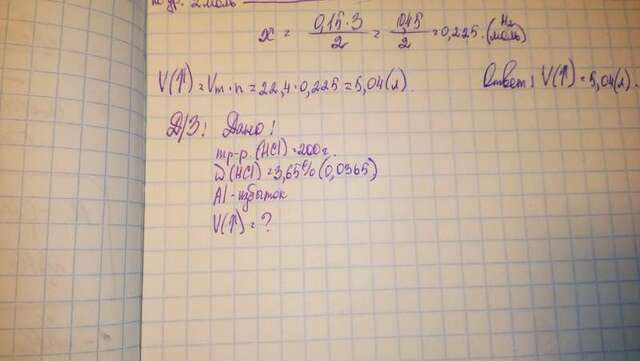 по ур. 2 моль
x = 0,15·3 / 2 = 0,45 / 2 = 0,225 (моль) H₂
V(↑) = Vm·n = 22,4·0,225 = 5,04(л). Ответ: V(↑) = 5,04(л).
Д/З: Дано:
mр-р. (HCl) = 200г.
W(HCl) = 3,65% (0,0365)
Al - избыток
V(↑) = ?